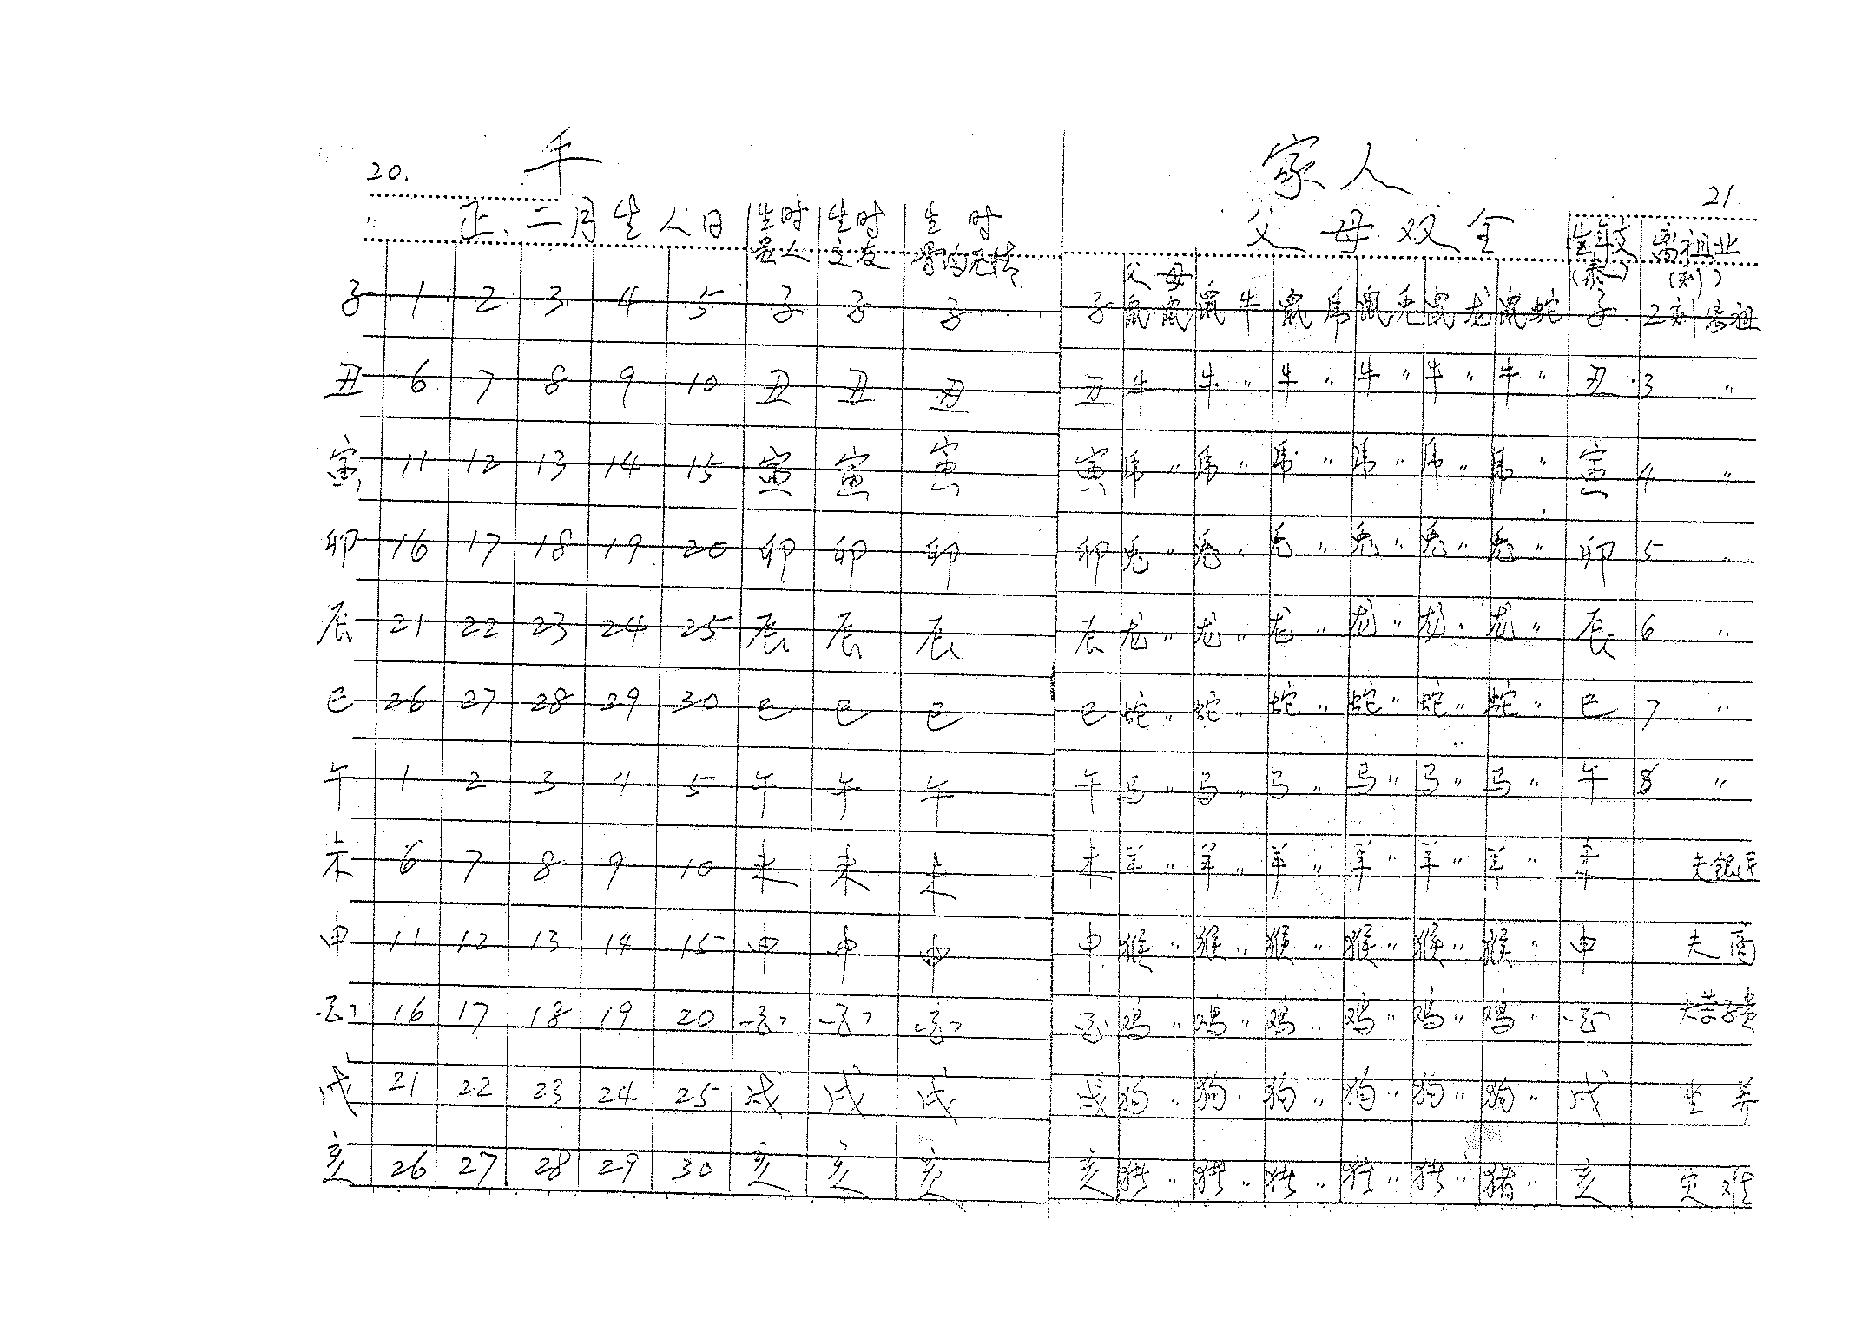 20.
平
正、二月生人日 生时贵人 生时 生时
子 1 2 3 4 5 子 子 子
丑 6 7 8 9 10 丑 丑 丑
寅 11 12 13 14 15 寅 寅 寅
卯 16 17 18 19 20 卯 卯 卯
辰 21 22 23 24 25 辰 辰 辰
巳 26 27 28 29 30 巳 巳 巳
午 1 2 3 4 5 午 午 午
未 6 7 8 9 10 未 未 未
申 11 12 13 14 15 申 申 申
酉 16 17 18 19 20 酉 酉 酉
戌 21 22 23 24 25 戌 戌 戌
亥 26 27 28 29 30 亥 亥 亥
家人
21
父母双全 生年支 离祖业
父母 (刻)
子 鼠鼠 鼠牛 鼠虎 鼠兔 鼠龙 鼠蛇 子 2刻离祖
丑 牛 牛〃 牛〃 牛〃 牛〃 牛〃 丑 3 〃
寅 虎〃 虎〃 虎〃 虎〃 虎〃 虎〃 寅 4 〃
卯 兔〃 兔〃 兔〃 兔〃 兔〃 兔〃 卯 5 〃
辰 龙〃 龙〃 龙〃 龙〃 龙〃 龙〃 辰 6 〃
巳 蛇〃 蛇〃 蛇〃 蛇〃 蛇〃 蛇〃 巳 7 〃
午 马〃 马〃 马〃 马〃 马〃 马〃 午 8 〃
未 羊〃 羊〃 羊〃 羊〃 羊〃 羊〃
申 猴〃 猴〃 猴〃 猴〃 猴〃 猴〃 申 夫商
酉 鸡〃 鸡〃 鸡〃 鸡〃 鸡〃 鸡〃 酉
戌 狗〃 狗〃 狗〃 狗〃 狗〃 狗〃 戌
亥 猪〃 猪〃 猪〃 猪〃 猪〃 猪〃 亥